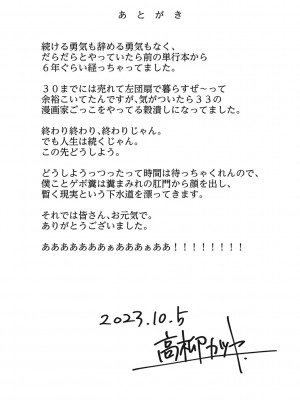 あとがき
続ける勇気も辞める勇気もなく、
だらだらとやっていたら前の単行本から
６年ぐらい経っちゃってました。
３０までには売れて左団扇で暮らすぜ～って
余裕こいてたんですが、気がついたら３３の
漫画家ごっこをやってる穀潰しになってました。
終わり終わり、終わりじゃん。
でも人生は続くじゃん。
この先どうしよう。
どうしようっつったって時間は待っちゃくれんので、
僕ことゲボ糞は糞まみれの肛門から顔を出し、
暫く現実という下水道を漂ってきます。
それでは皆さん、お元気で。
ありがとうございました。
ああああああぁあああぁああ！！！！！！！！
2023.10.5
高柳カツヤ